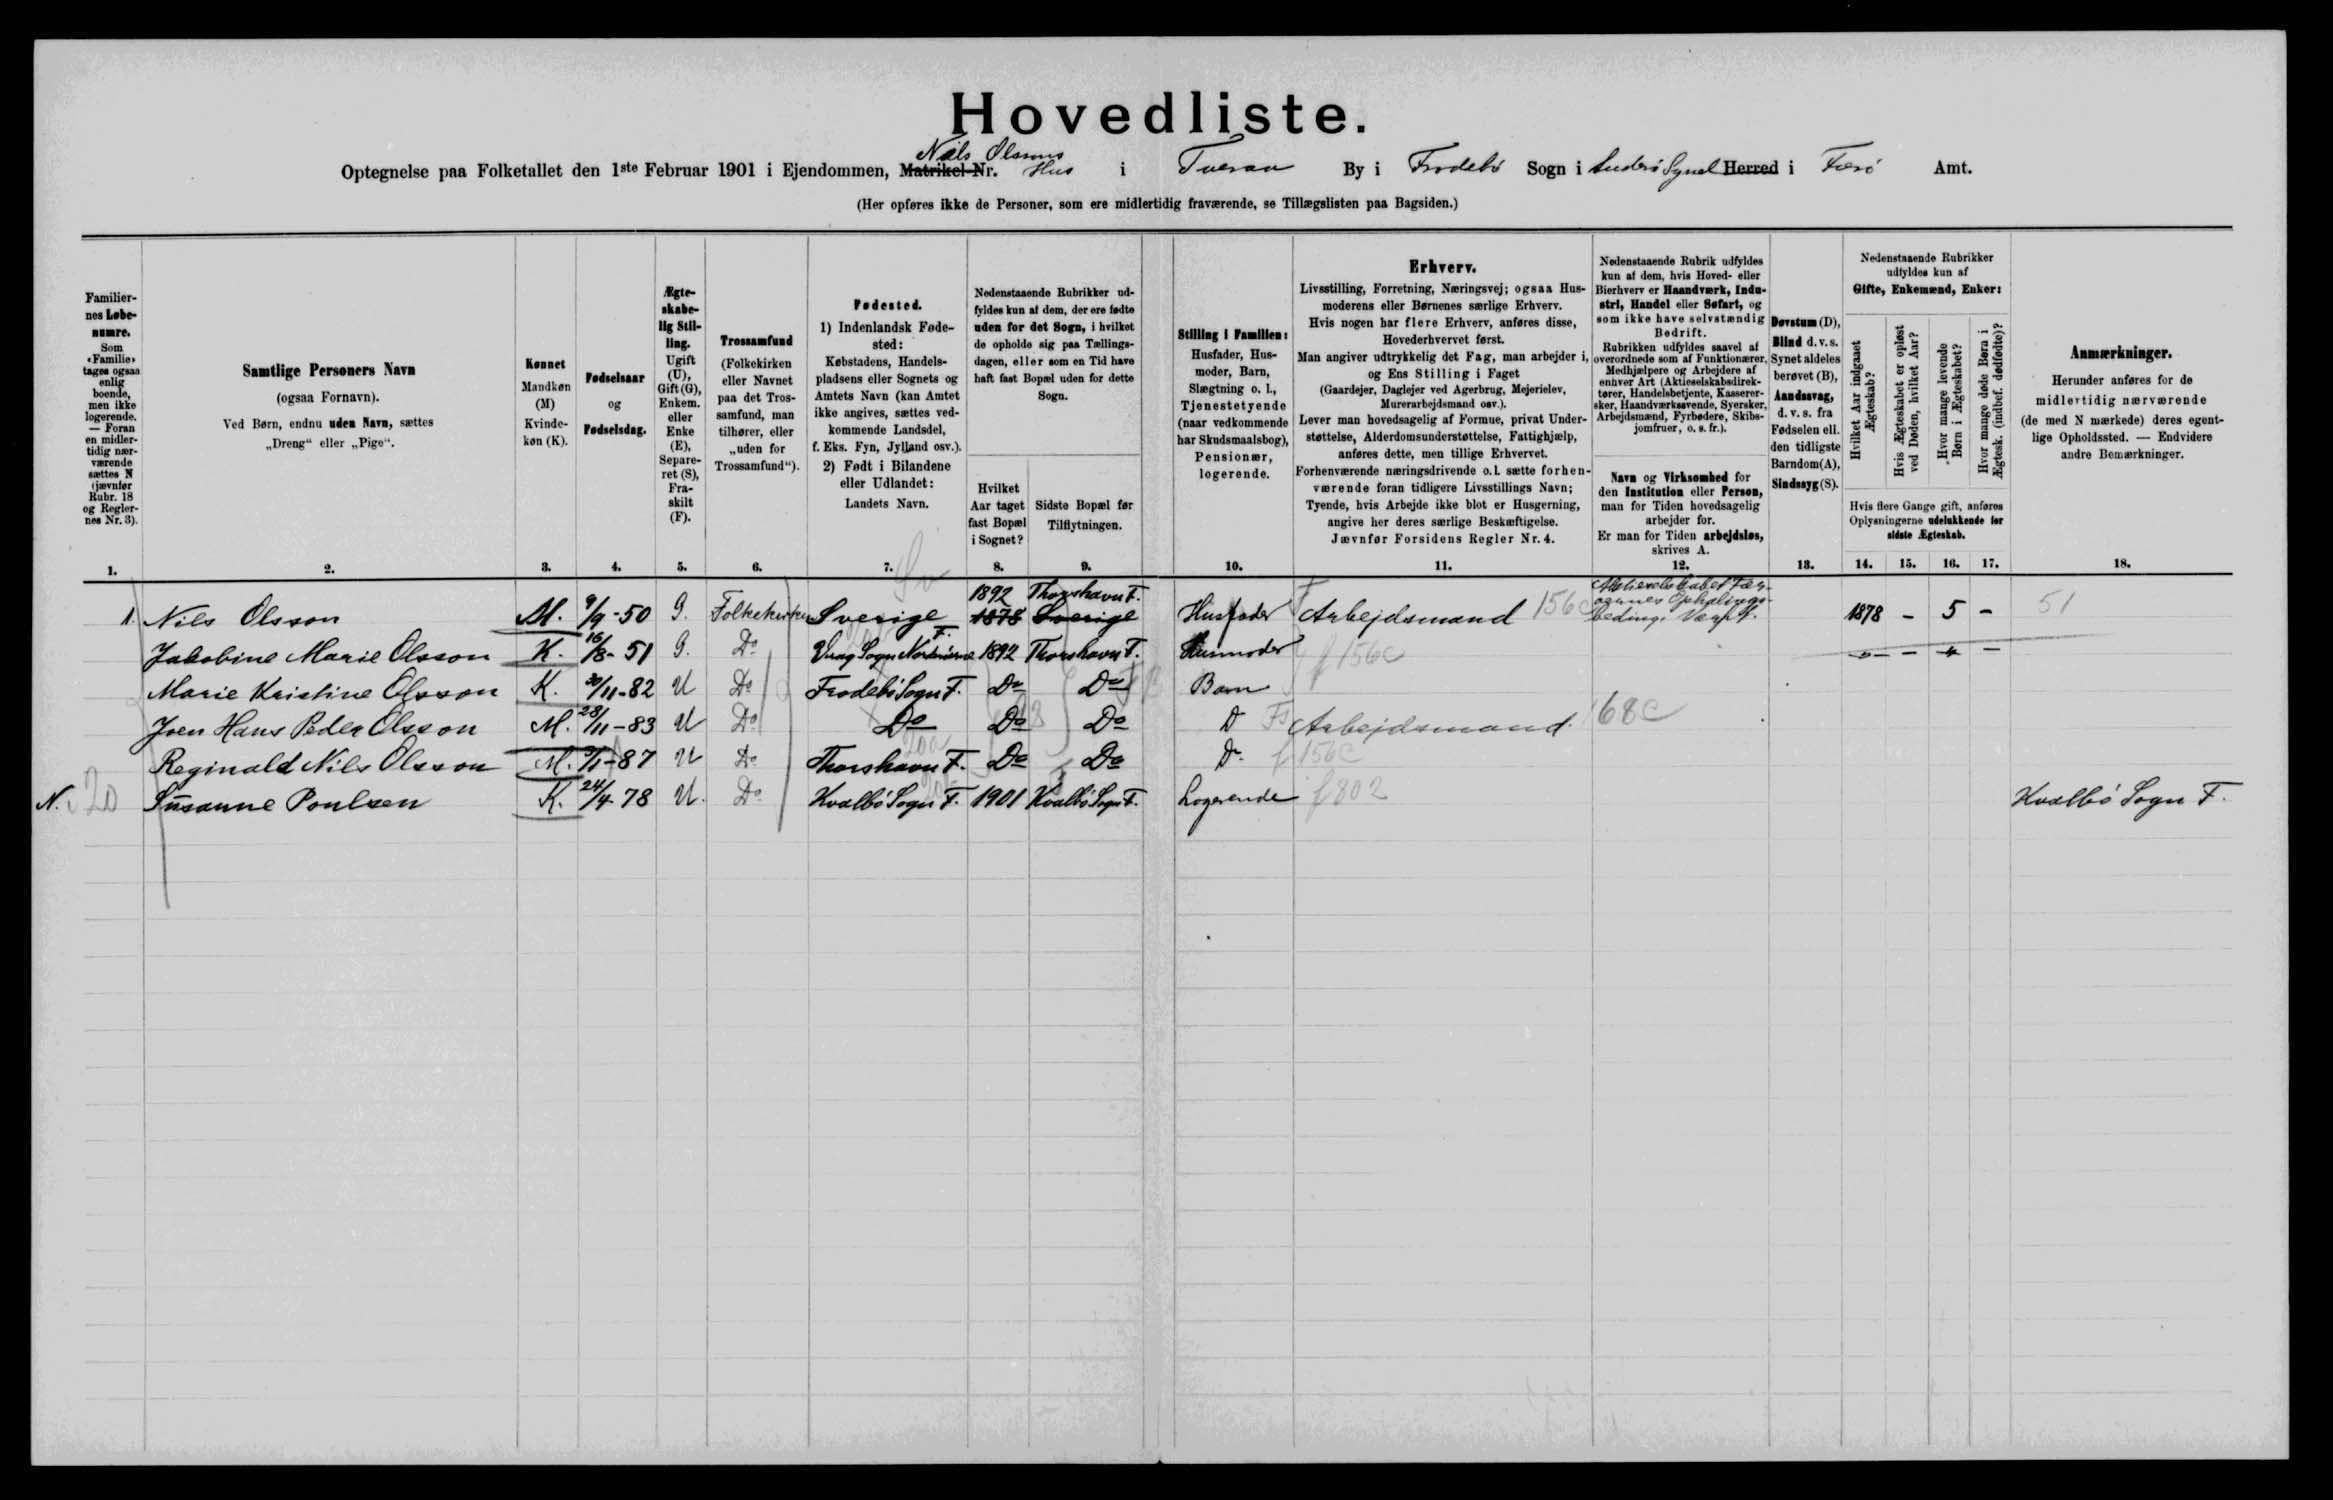 Hovedliste.
Nils Olssons
Optegnelse paa Folketallet den 1ste Februar 1901 i Ejendommen, Matrikel-Nr. Hus i Tveraa By i Frodebö Sogn i Suderö Syssel Herred i Færö Amt.
(Her opføres ikke de Personer, som ere midlertidig fraværende, se Tillægslisten paa Bagsiden.)
Familiernes Løbenumre.
Som «Familie» tages ogsaa enlig boende, men ikke logerende. — Foran en midlertidig nærværende sættes N (jævnfør Rubr. 18 og Reglernes Nr. 3).
Samtlige Personers Navn
(ogsaa Fornavn).
Ved Børn, endnu uden Navn, sættes
„Dreng“ eller „Pige“.
Kønnet
Mandkøn (M)
Kvindekøn (K).
Fødselsaar
og
Fødselsdag.
Ægteskabelig Stilling.
Ugift (U), Gift (G), Enkem. eller Enke (E), Separeret (S), Fraskilt (F).
Trossamfund
(Folkekirken eller Navnet paa det Trossamfund, man tilhører, eller „uden for Trossamfund“).
Fødested.
1) Indenlandsk Fødested:
Købstadens, Handelspladsens eller Sognets og Amtets Navn (kan Amtet ikke angives, sættes vedkommende Landsdel, f. Eks. Fyn, Jylland osv.).
2) Født i Bilandene eller Udlandet:
Landets Navn.
Nedenstaaende Rubrikker udfyldes kun af dem, der ere fødte uden for det Sogn, i hvilket de opholde sig paa Tællingsdagen, eller som en Tid have haft fast Bopæl uden for dette Sogn.
Hvilket Aar taget fast Bopæl i Sognet?
Sidste Bopæl før Tilflytningen.
Stilling i Familien:
Husfader, Husmoder, Barn, Slægtning o. l., Tjenestetyende (naar vedkommende har Skudsmaalsbog), Pensionær, logerende.
Erhverv.
Livsstilling, Forretning, Næringsvej; ogsaa Husmoderens eller Børnenes særlige Erhverv.
Hvis nogen har flere Erhverv, anføres disse, Hovederhvervet først.
Man angiver udtrykkelig det Fag, man arbejder i, og Ens Stilling i Faget
(Gaardejer, Daglejer ved Agerbrug, Mejerielev, Murerarbejdsmand osv.).
Lever man hovedsagelig af Formue, privat Understøttelse, Alderdomsunderstøttelse, Fattighjælp, anføres dette, men tillige Erhvervet.
Forhenværende næringsdrivende o. l. sætte forhenværende foran tidligere Livsstillings Navn;
Tyende, hvis Arbejde ikke blot er Husgerning, angive her deres særlige Beskæftigelse.
Jævnfør Forsidens Regler Nr. 4.
Nedenstaaende Rubrik udfyldes kun af dem, hvis Hoved- eller Bierhverv er Haandværk, Industri, Handel eller Søfart, og som ikke have selvstændig Bedrift.
Rubrikken udfyldes saavel af overordnede som af Funktionærer, Medhjælpere og Arbejdere af enhver Art (Aktieselskabsdirektører, Handelsbetjente, Kasserersker, Haandværkssvende, Syersker, Arbejdsmænd, Fyrbødere, Skibsjomfruer, o. s. fr.).
Navn og Virksomhed for den Institution eller Person, man for Tiden hovedsagelig arbejder for.
Er man for Tiden arbejdsløs, skrives A.
Døvstum (D), Blind d. v. s. Synet aldeles berøvet (B), Aandssvag, d. v. s. fra Fødselen ell. den tidligste Barndom (A), Sindssyg (S).
Nedenstaaende Rubrikker udfyldes kun af
Gifte, Enkemænd, Enker:
Hvilket Aar indgaaet Ægteskab?
Hvis Ægteskabet er opløst ved Døden, hvilket Aar?
Hvor mange levende Børn i Ægteskabet?
Hvor mange døde Børn i Ægtesk. (indbef. dødfødte)?
Hvis flere Gange gift, anføres Oplysningerne udelukkende for sidste Ægteskab.
Anmærkninger.
Herunder anføres for de midlertidig nærværende (de med N mærkede) deres egentlige Opholdssted. — Endvidere andre Bemærkninger.
1. 2. 3. 4. 5. 6. 7. 8. 9. 10. 11. 12. 13. 14. 15. 16. 17. 18.
Sv
1892 Thorshavn F.
1. Nils Olsson M. 9/9-50 G. Folkekirken Sverige 1878 Sverige Husfader Arbejdsmand 156c 1878 - 5 - 51
Jakobine Marie Olsson K. 16/8-51 G. Do Vaag Sogn F. 1892 Thorshavn F. Husmoder f 156c
Marie Kristine Olsson K. 30/11-82 U Do Frodebö Sogn F. Do Do Barn
Joen Hans Peder Olsson M. 28/11-83 U Do Do Do Do D Arbejdsmand. 68c
Reginald Nils Olsson M. 3/1-87 U Do Thorshavn F. Do Do Do f 156c
N. 20 Susanne Poulsen K. 24/4-78 U. Do Kvalbö Sogn F. 1901 Kvalbö Sogn F. Logerende f802 Kvalbö Sogn F.